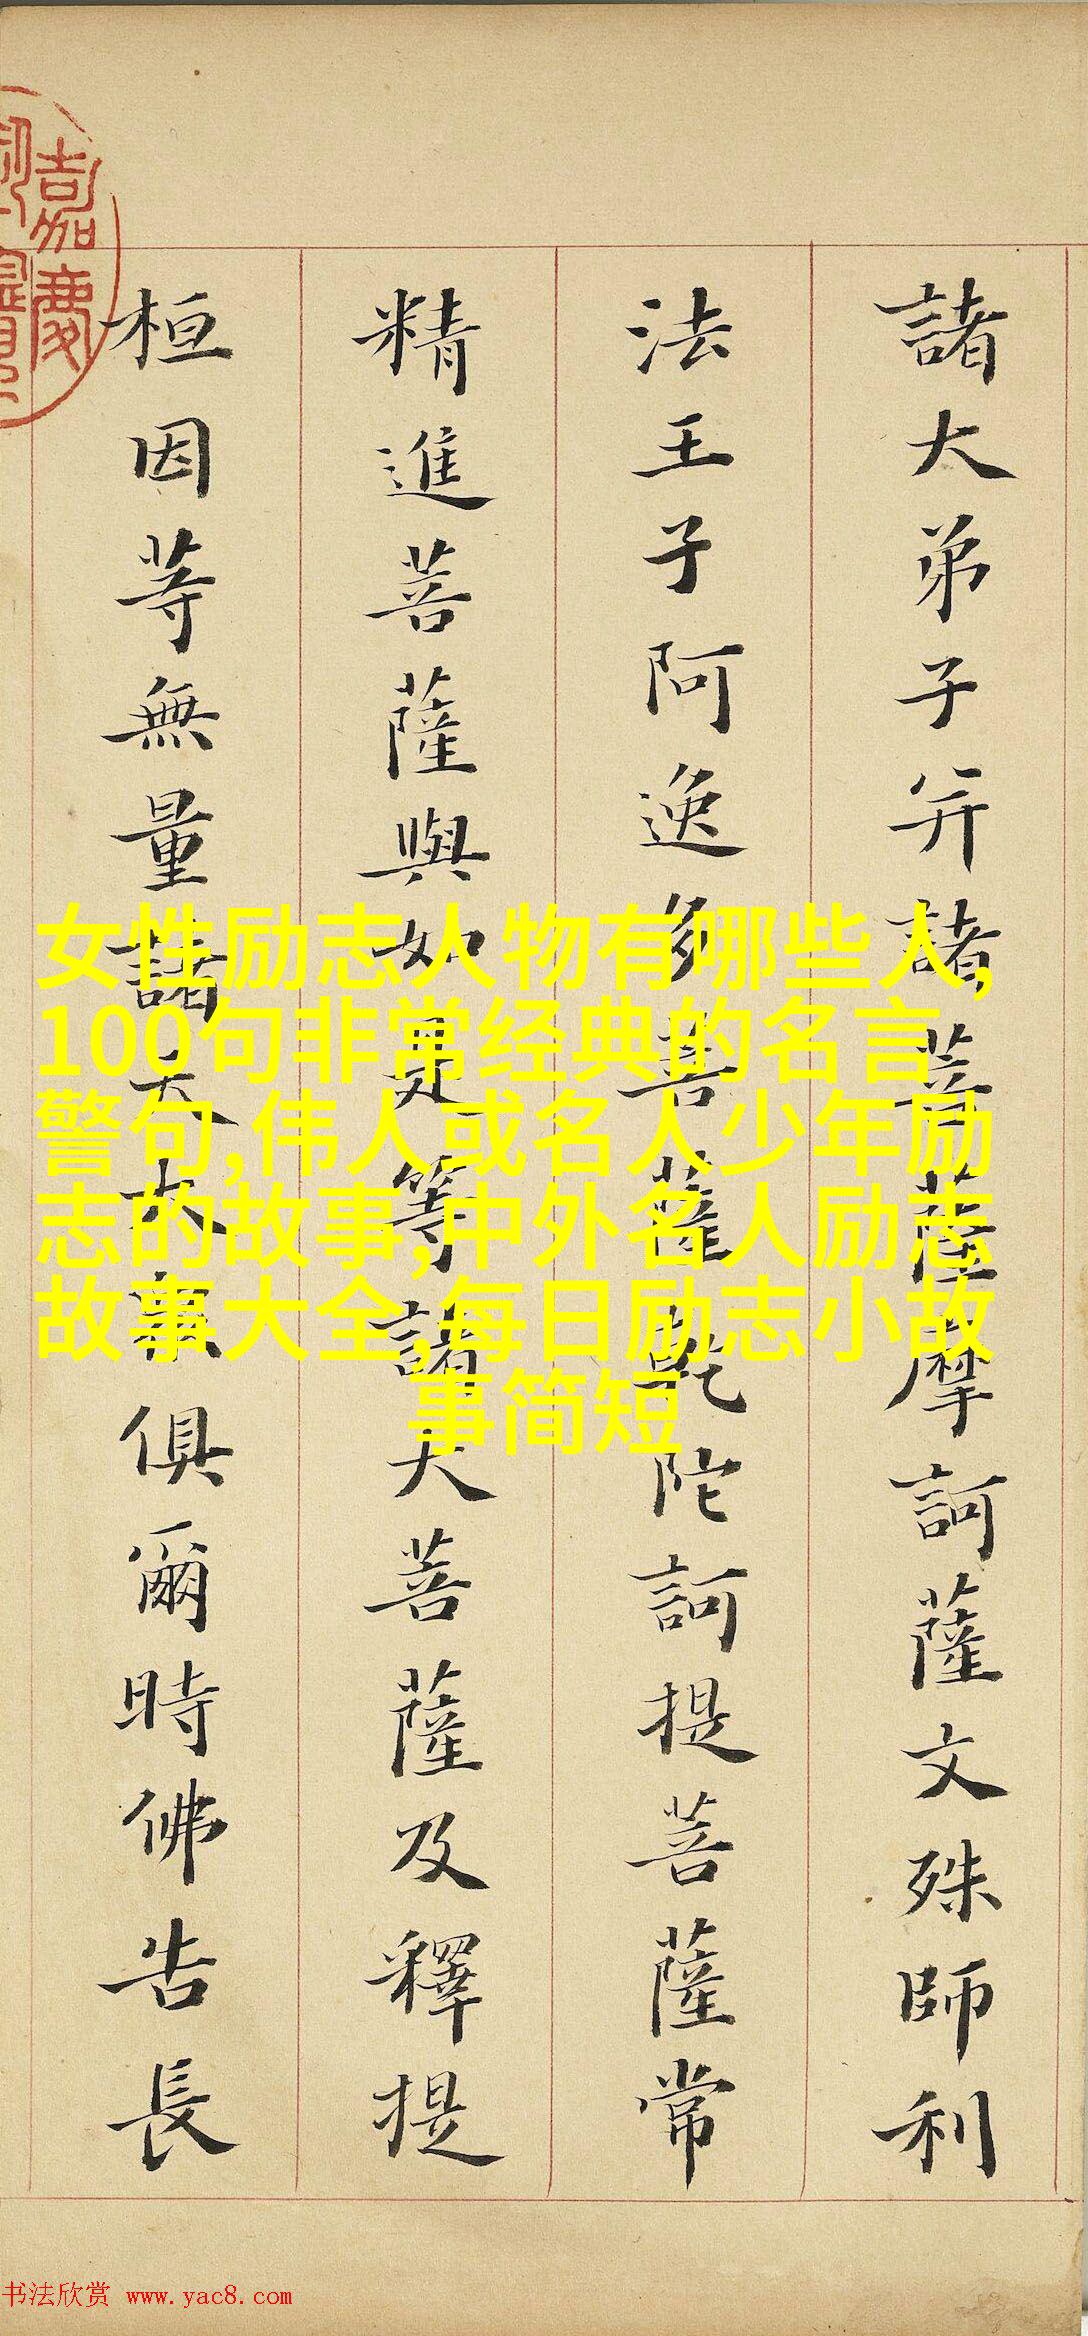 諸大弟子并諸菩薩摩訶薩文殊師利
法王子阿逸多菩薩乾陀訶提菩薩常
精進菩薩與如是等諸大菩薩及釋提
桓因等無量諸天大衆俱爾時佛告長
嘉慶
女性励志人物有哪些人,
100句非常经典的名言
警句,伟人或名人少年励
志的故事,中外名人励志
故事大全,每日励志小故
事简短
书法欣赏 www.yac8.com